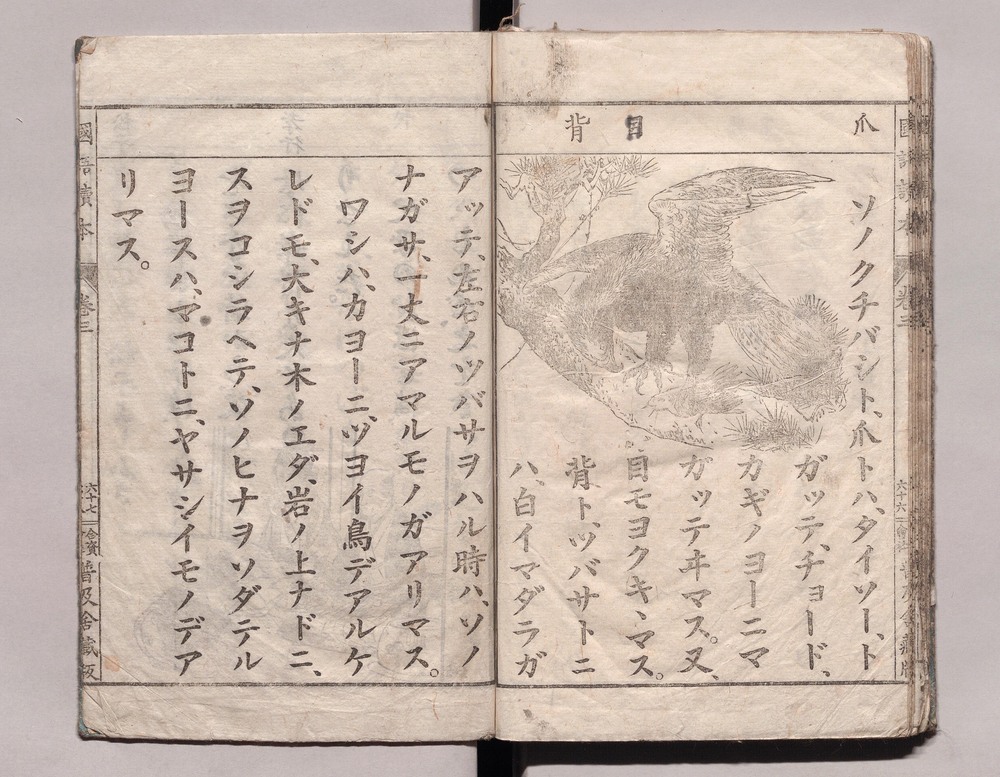 爪
目
背
ソノクチバシト、爪トハ、タイソー、ト
ガッテ、チョード、
カギノヨーニマ
ガッテヰマス。又、
目モヨクキヽマス。
背ト、ツバサトニ
ハ、白イマダラガ
アッテ、左右ノツバサヲハル時ハ、ソノ
ナガサ、一丈ニアマルモノガアリマス。
ワシハ、カヨーニ、ツヨイ鳥デアルケ
レドモ、大キナ木ノエダ、岩ノ上ナドニ、
スヲコシラヘテ、ソノヒナヲソダテル
ヨースハ、マコトニ、ヤサシイモノデア
リマス。
國語讀本
卷三
六十七
合資會社
普及舍藏版